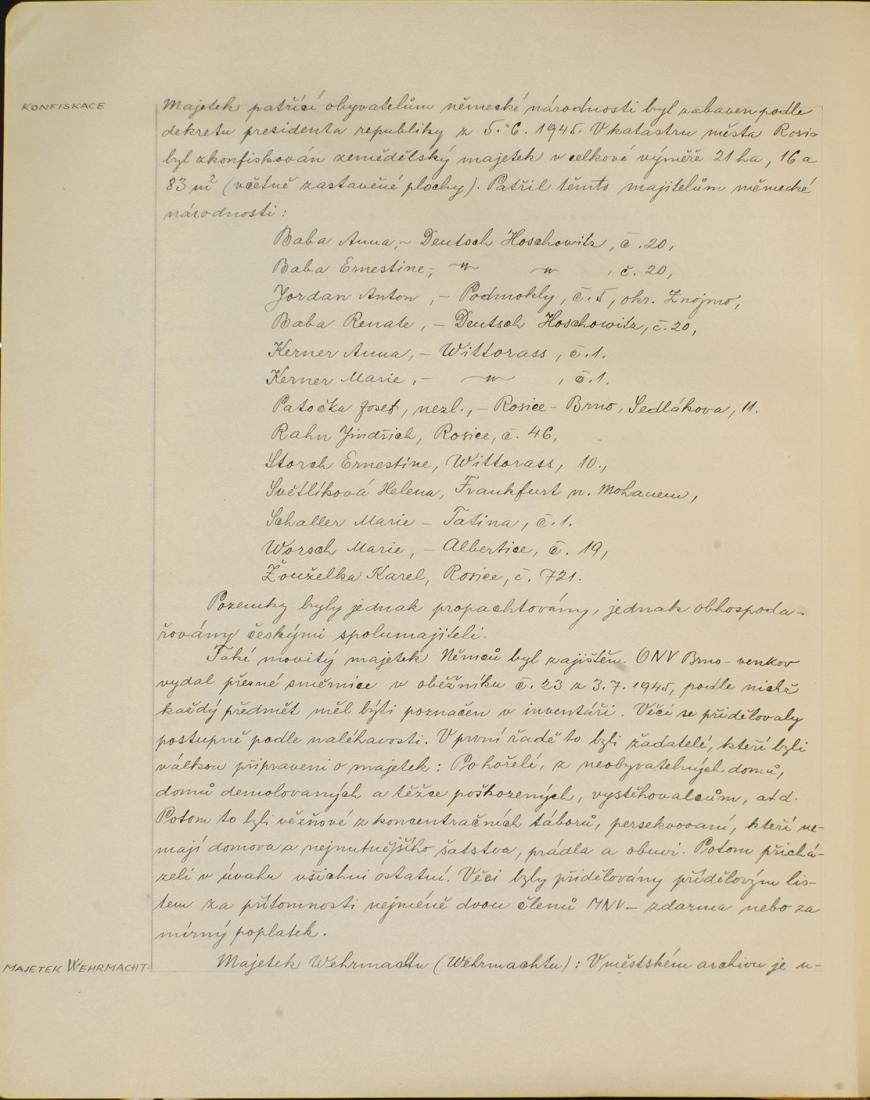 KONFISKACE
Majetek patřící obyvatelům německé národnosti byl zabaven podle
dekretu presidenta republiky z 5. 6. 1945. V katastru města Rosic
byl zkonfiskován zemědělský majetek v celkové výměře 21 ha, 16 a
83 m² (včetně zastavěné plochy). Patřil těmto majitelům německé
národnosti:
Baba Anna, – Deutsch Hoschowitz, č. 20,
Baba Ernestine, –〃– –〃– , č. 20,
Jordan Anton, – Podmokly, č. 5, okr. Znojmo,
Baba Renate, – Deutsch Hoschowitz, č. 20,
Kerner Anna, – Wittorass, č. 1.
Kerner Marie, – –〃– , č. 1.
Patočka Josef, nezl., – Rosice - Brno, Sedlákova, 11.
Rahn Jindřich, Rosice, č. 46,
Storch Ernestine, Wittorass, 10.,
Světlíková Helena, Frankfurt n. Mohanem,
Schaller Marie – Tatina, č. 1.
Worsch Marie, – Albertice, č. 19,
Žouželka Karel, Rosice, č. 721.
Pozemky byly jednak propachtovány, jednak obhospoda-
řovány českými spolumajiteli.
Také movitý majetek Němců byl zajištěn. ONV Brno - venkov
vydal přesné směrnice v oběžníku č. 23 z 3. 7. 1945, podle nichž
každý předmět měl býti poznačen v inventáři. Věci se přidělovaly
postupně podle naléhavosti. V první řadě to byli žadatelé, kteří byli
válkou připraveni o majetek: Pohořelí, z neobyvatelných domů,
domů demolovaných a těžce poškozených, vystěhovalcům, atd.
Potom to byli vězňové z koncentračních táborů, persekvovaní, kteří ne-
mají domova a nejnutnějšího šatstva, prádla a obuvi. Potom přichá-
zeli v úvahu všichni ostatní. Věci byly přidělovány přídělovým lis-
tem za přítomnosti nejméně dvou členů MNV – zdarma nebo za
mírný poplatek.
MAJETEK WEHRMACHT.
Majetek Wehrmachtu (Wehrmachtu): V městském archivu je u-